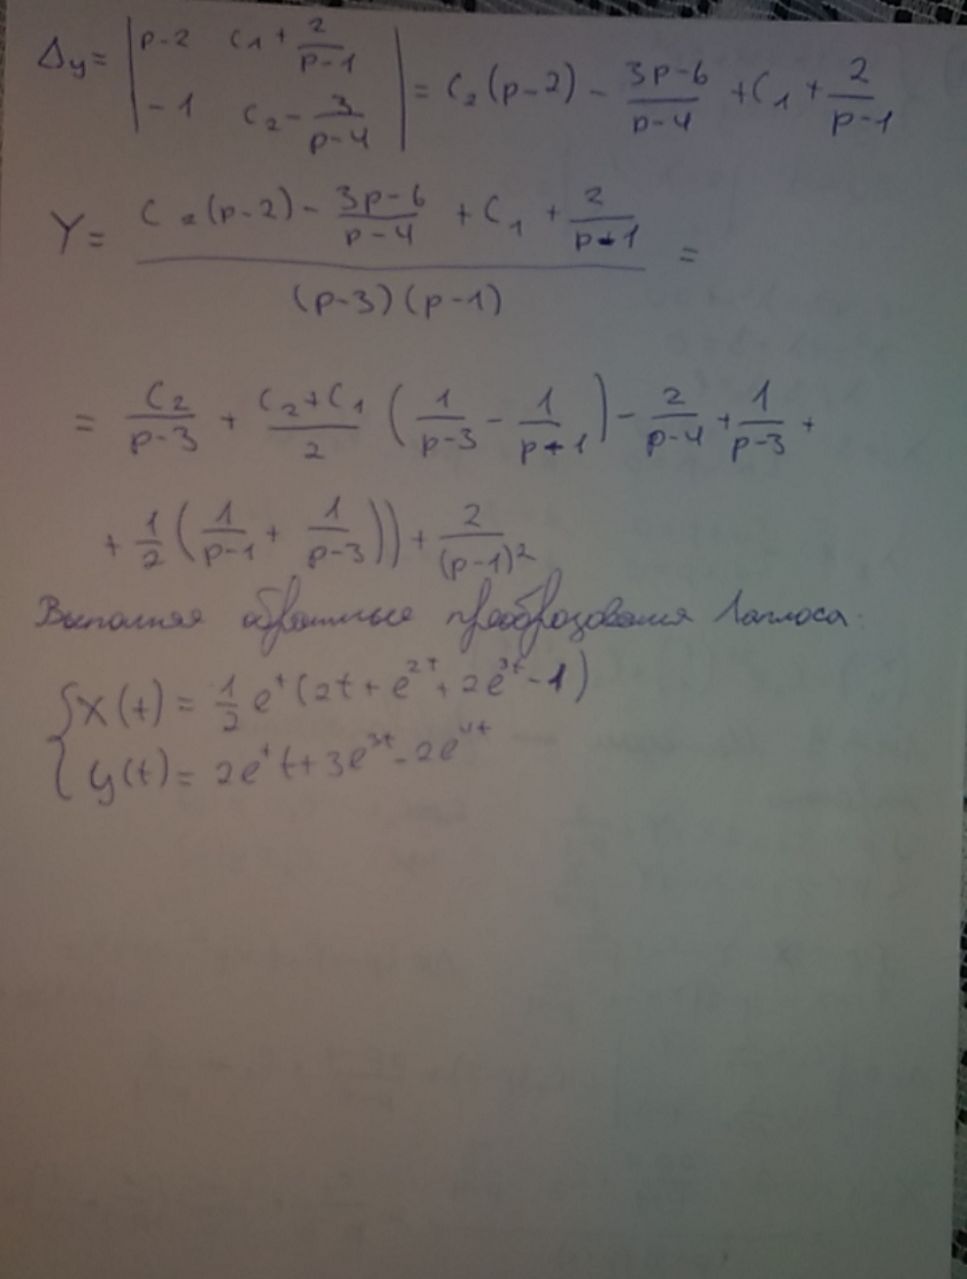 Δy = | p-2 C₁ + 2/(p-1) ; -1 C₂ - 3/(p-4) | = C₂(p-2) - (3p-6)/(p-4) + C₁ + 2/(p-1)
Y = (C₂(p-2) - (3p-6)/(p-4) + C₁ + 2/(p-1)) / ((p-3)(p-1)) =
= C₂/(p-3) + (C₂+C₁)/2 (1/(p-3) - 1/(p-1)) - 2/(p-4) + 1/(p-3) +
+ 1/2 (1/(p-1) + 1/(p-3))) + 2/(p-1)²
Выполняя обратные преобразования Лапласа:
{ x(t) = 1/2 eᵗ(2t + e²ᵗ + 2e³ᵗ - 1)
y(t) = 2eᵗt + 3e³ᵗ - 2e⁴ᵗ